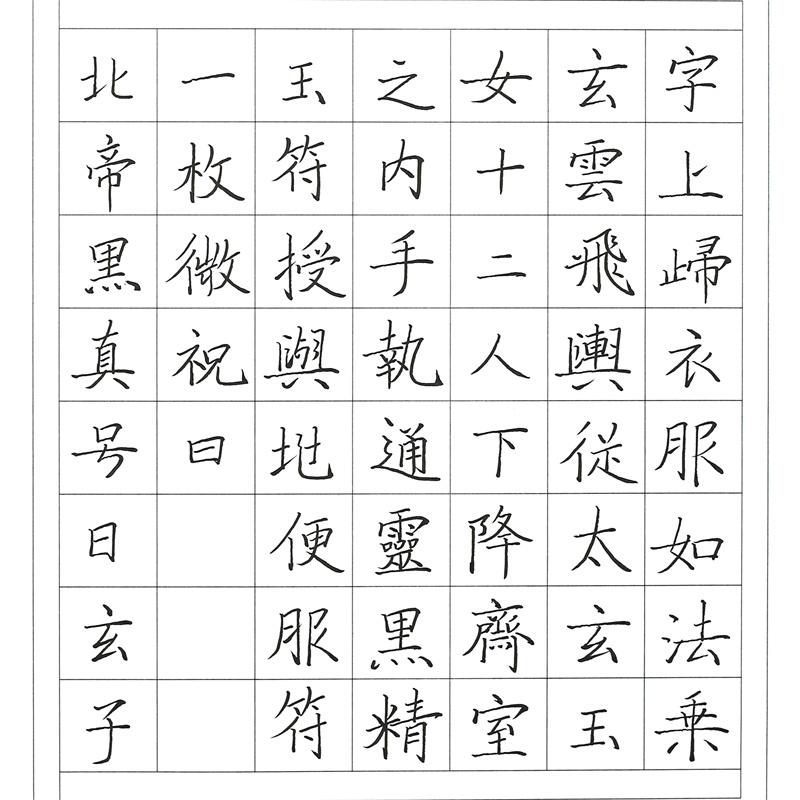 字上㱕衣服如法乗
玄雲飛輿從太玄玉
女十二人下降齋室
之内手執通靈黑精
玉符授與便服符
一枚微祝曰
北帝黑真号日玄子